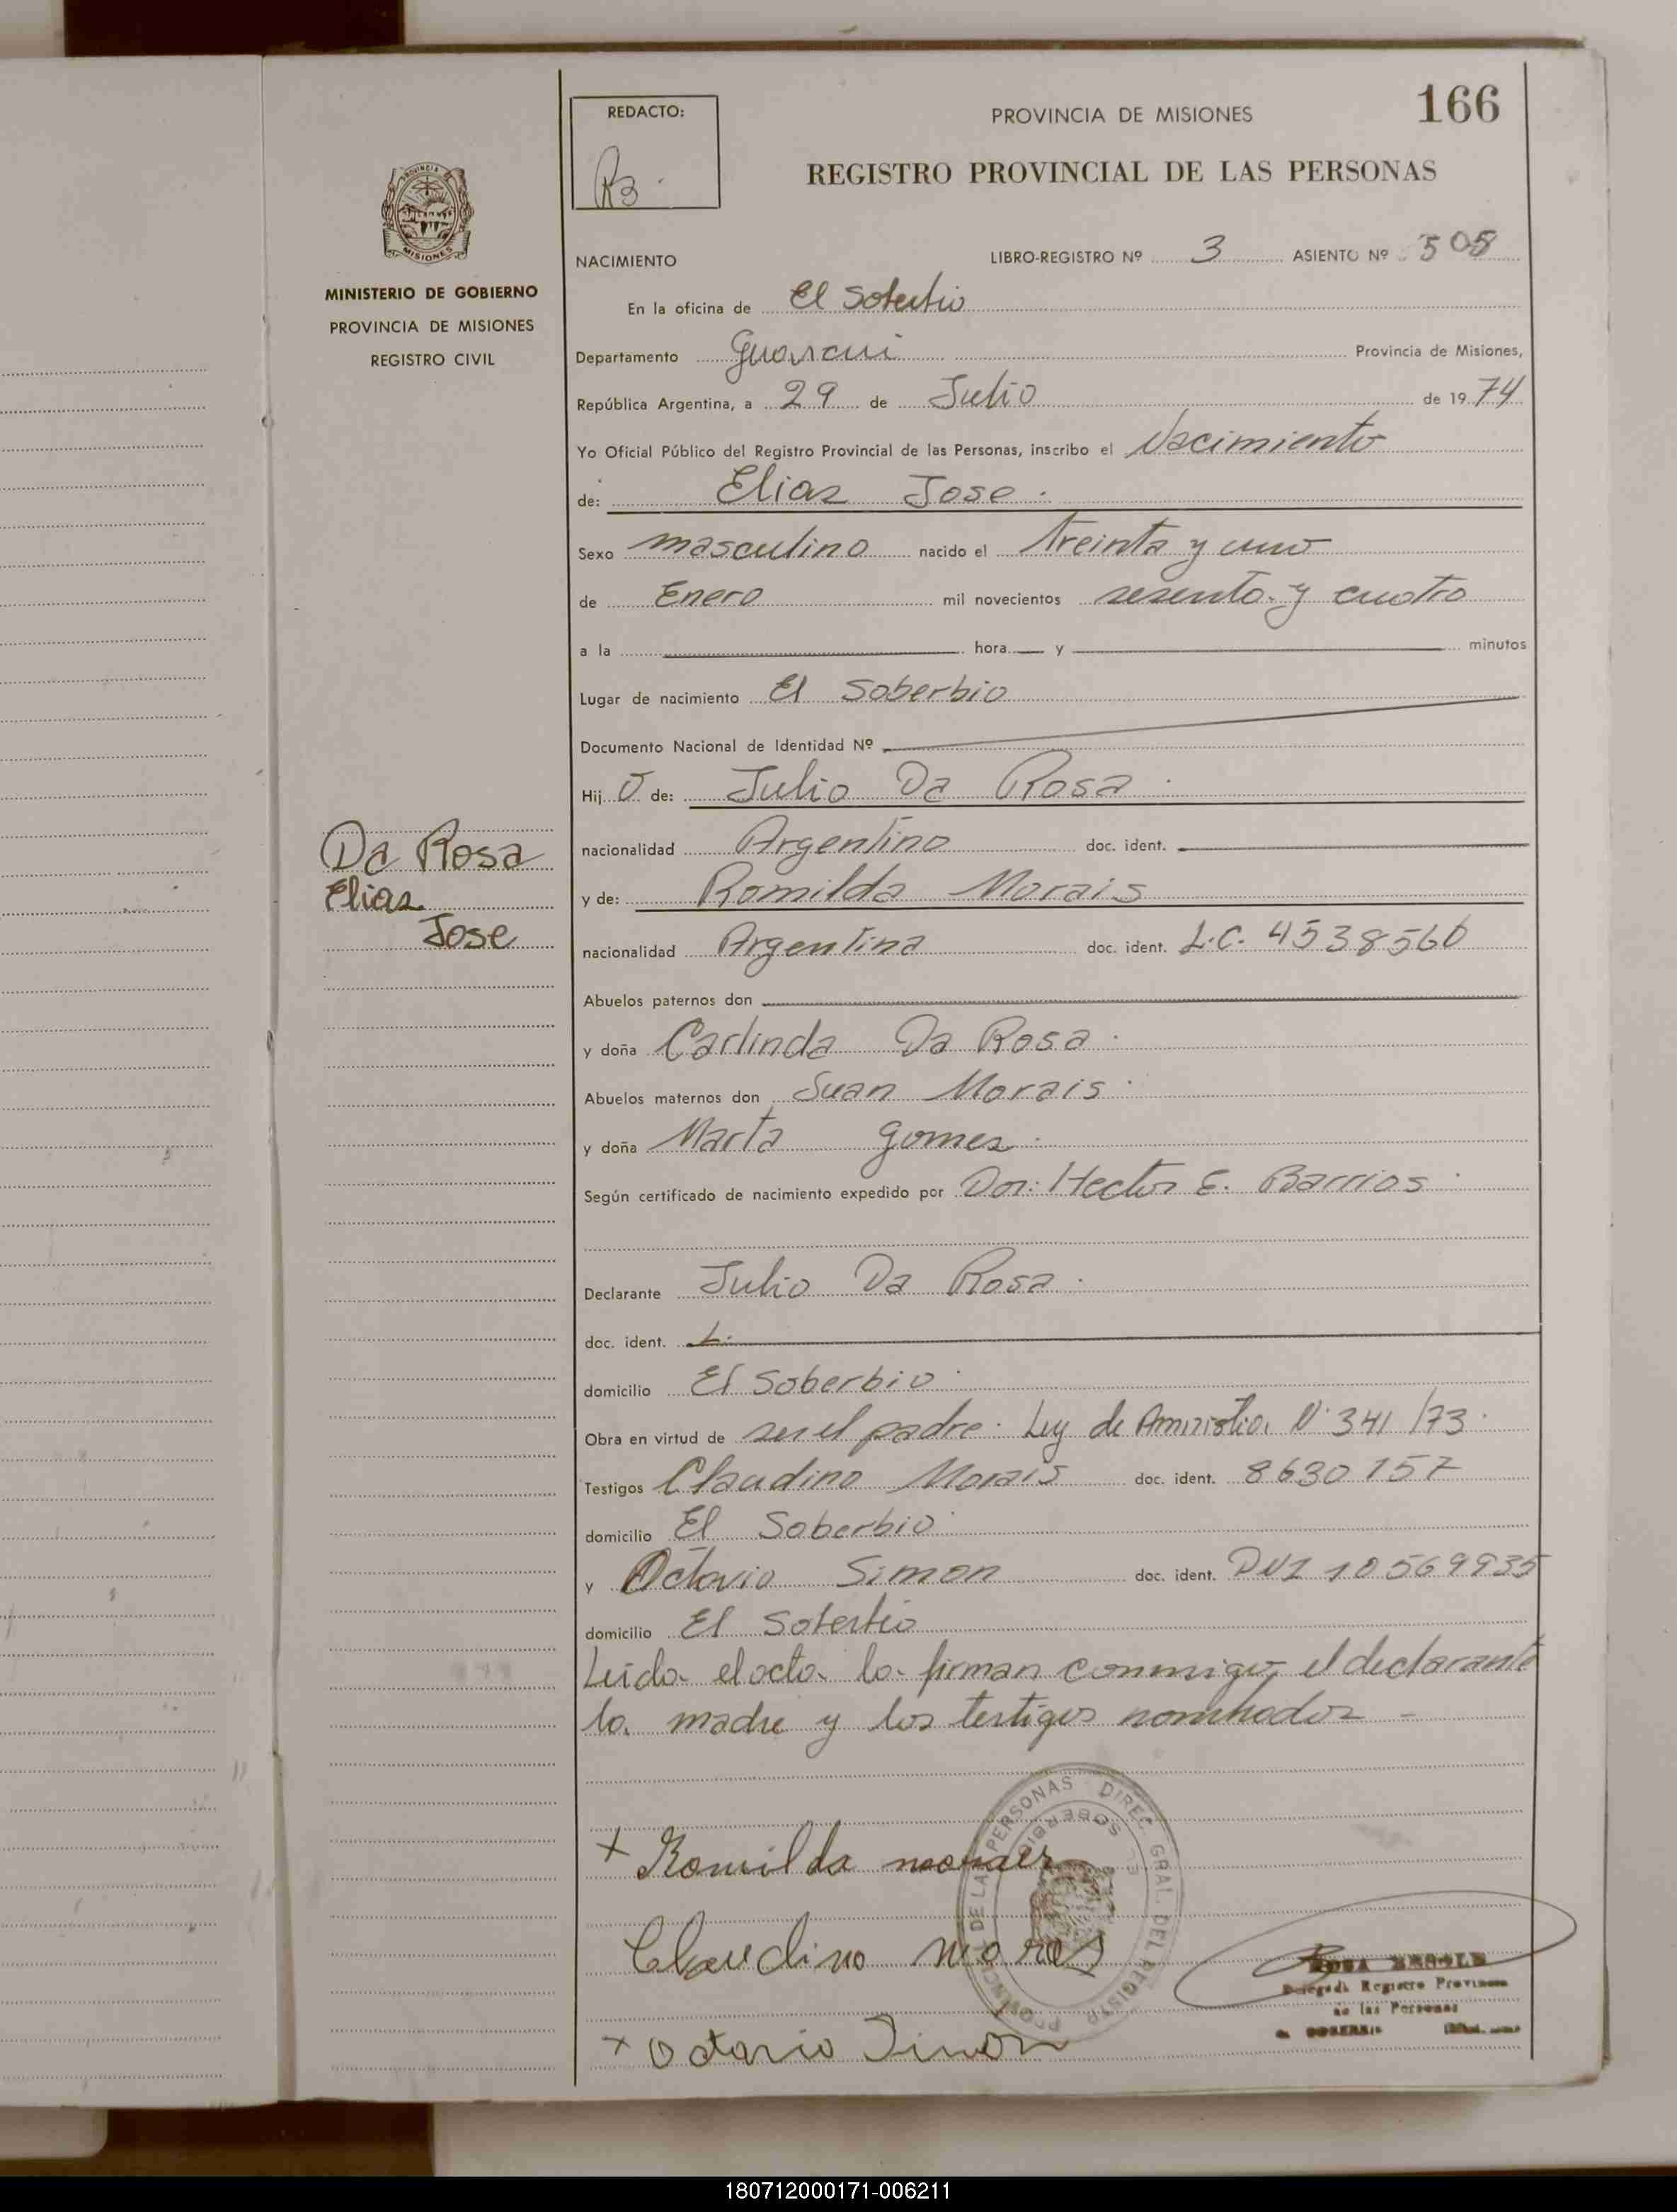 166
REDACTO:
PROVINCIA DE MISIONES
REGISTRO PROVINCIAL DE LAS PERSONAS
MINISTERIO DE GOBIERNO
PROVINCIA DE MISIONES
REGISTRO CIVIL
NACIMIENTO LIBRO-REGISTRO Nº 3 ASIENTO Nº 505
En la oficina de El Soberbio
Departamento Guarani Provincia de Misiones,
República Argentina, a 29 de Julio de 1974
Yo Oficial Público del Registro Provincial de las Personas, inscribo el Nacimiento
de: Elias Jose.
Sexo masculino nacido el treinta y uno
de Enero mil novecientos sesenta y cuatro
a la hora y minutos
Lugar de nacimiento El Soberbio
Documento Nacional de Identidad Nº
Hijo de: Julio Da Rosa.
nacionalidad Argentino doc. ident.
y de: Romilda Morais
nacionalidad Argentina doc. ident. L.C. 4538560
Da Rosa
Elias
Jose
Abuelos paternos don
y doña Carlinda Da Rosa.
Abuelos maternos don Juan Morais.
y doña Marta gomes.
Según certificado de nacimiento expedido por Don: Hector E. Barrios.
Declarante Julio Da Rosa.
doc. ident.
domicilio El Soberbio.
Obra en virtud de ser el padre. Ley de Amnistia Nº 341/73.
Testigos Claudino Morais doc. ident. 8630157
domicilio El Soberbio.
y Octavio Simon doc. ident. DNI 10569935
domicilio El Soberbio
Leida el acta la firman conmigo, el declarante
la madre y los testigos nombrados -
PROVINCIAL DE LAS PERSONAS DIREC. GRAL. DEL REGISTRO
EL SOBERBIO
+ Romilda
Claudino moras
+ Octavio Simon
Registro Provincial
de las Personas
180712000171-006211